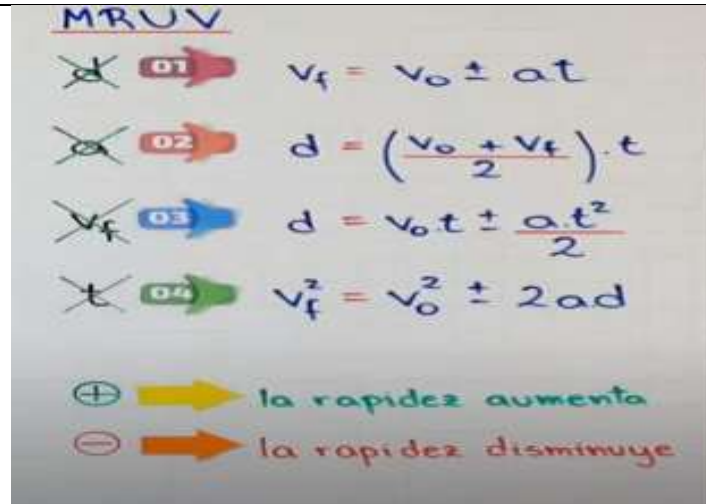 MRUV
d 01 v_f = v_o ± at
a 02 d = (v_o + v_f / 2) . t
v_f 03 d = v_o.t ± a.t² / 2
t 04 v_f² = v_o² ± 2ad
+ la rapidez aumenta
- la rapidez disminuye